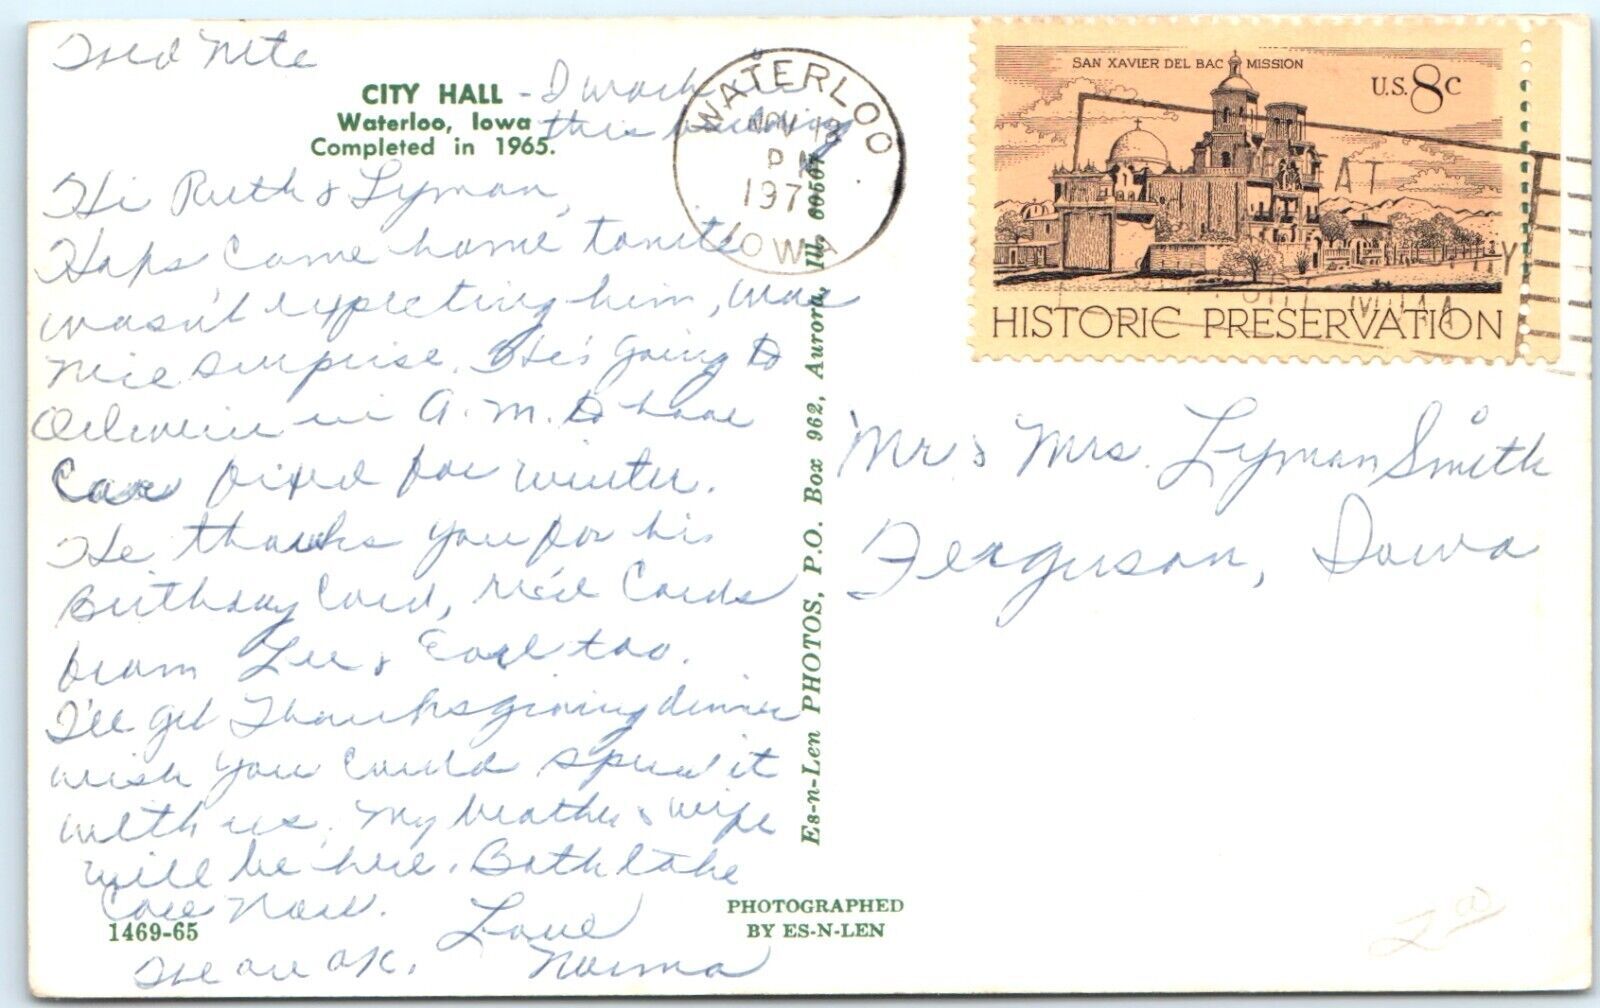 Wed Nite
CITY HALL - I work in
Waterloo, Iowa this building
Completed in 1965.
Hi Ruth & Lyman,
Haps came home tonite
wasn't expecting him, was
nice surprise. He's going to
Oelwein in A.M. to have
Car fixed for winter.
He thanks you for his
Birthday Card, rec'd Cards
from Lee & Earl too.
I'll get Thanksgiving dinner
wish you could spend it
with us. My brother & wife
will be here. Both take
Care Now.
Love
We are OK. Norma
1469-65
PHOTOGRAPHED
BY ES-N-LEN
Es-n-Len PHOTOS, P.O. Box 962, Aurora, Ill. 60507
WATERLOO
NOV 18
PM
197
IOWA
SAN XAVIER DEL BAC MISSION
U.S. 8c
HISTORIC PRESERVATION
AT
Mr & Mrs. Lyman Smith
Ferguson, Iowa